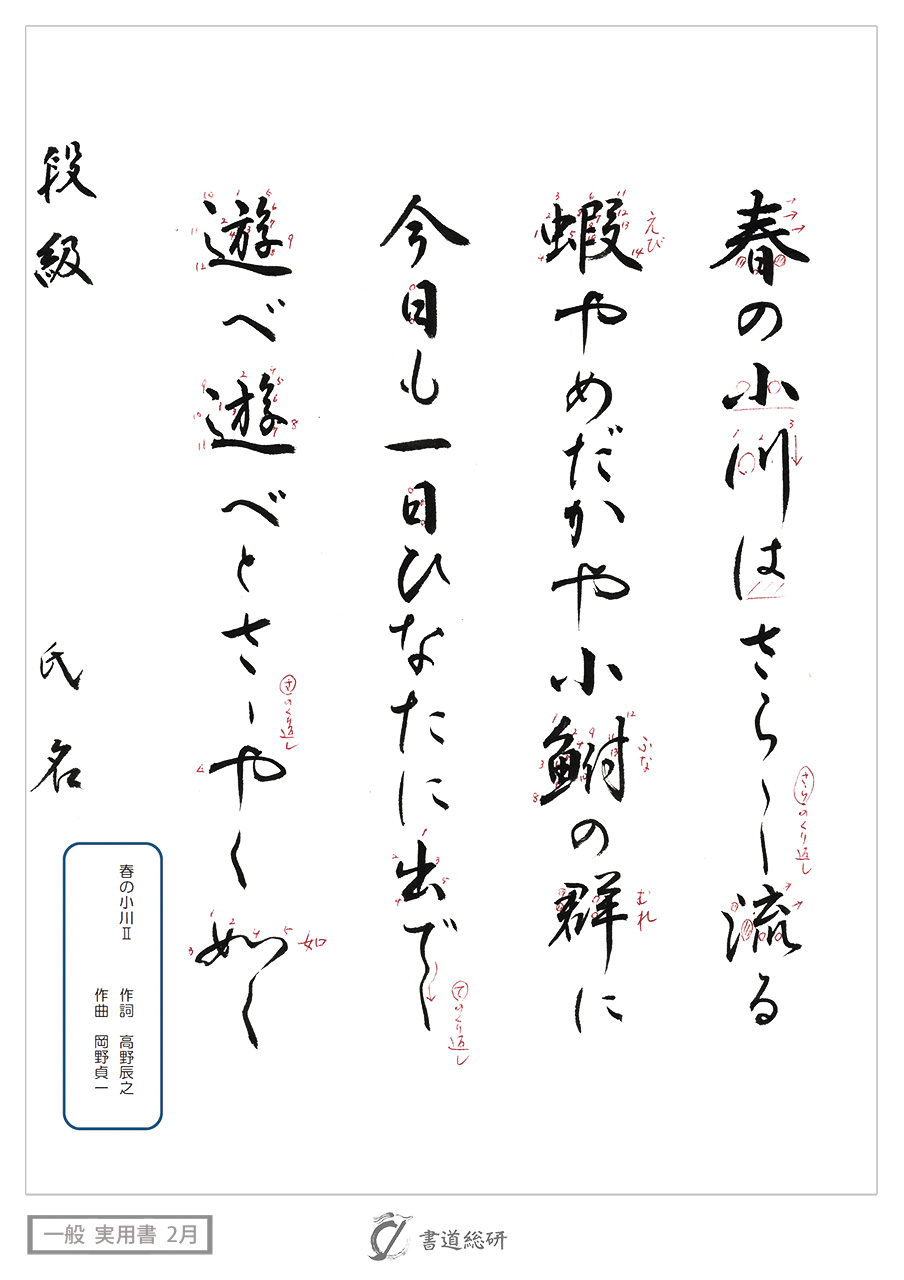 春の小川はさら〳〵流る
えび
さらのくり返し
蝦やめだかや小鮒の群に
ふな
むれ
今日も一日ひなたに出でゝ
てのくり返し
遊べ遊べとさゝやく如く
さのくり返し
如
段級 氏名
春の小川Ⅱ
作詞 高野辰之
作曲 岡野貞一
一般 実用書 2月
書道総研